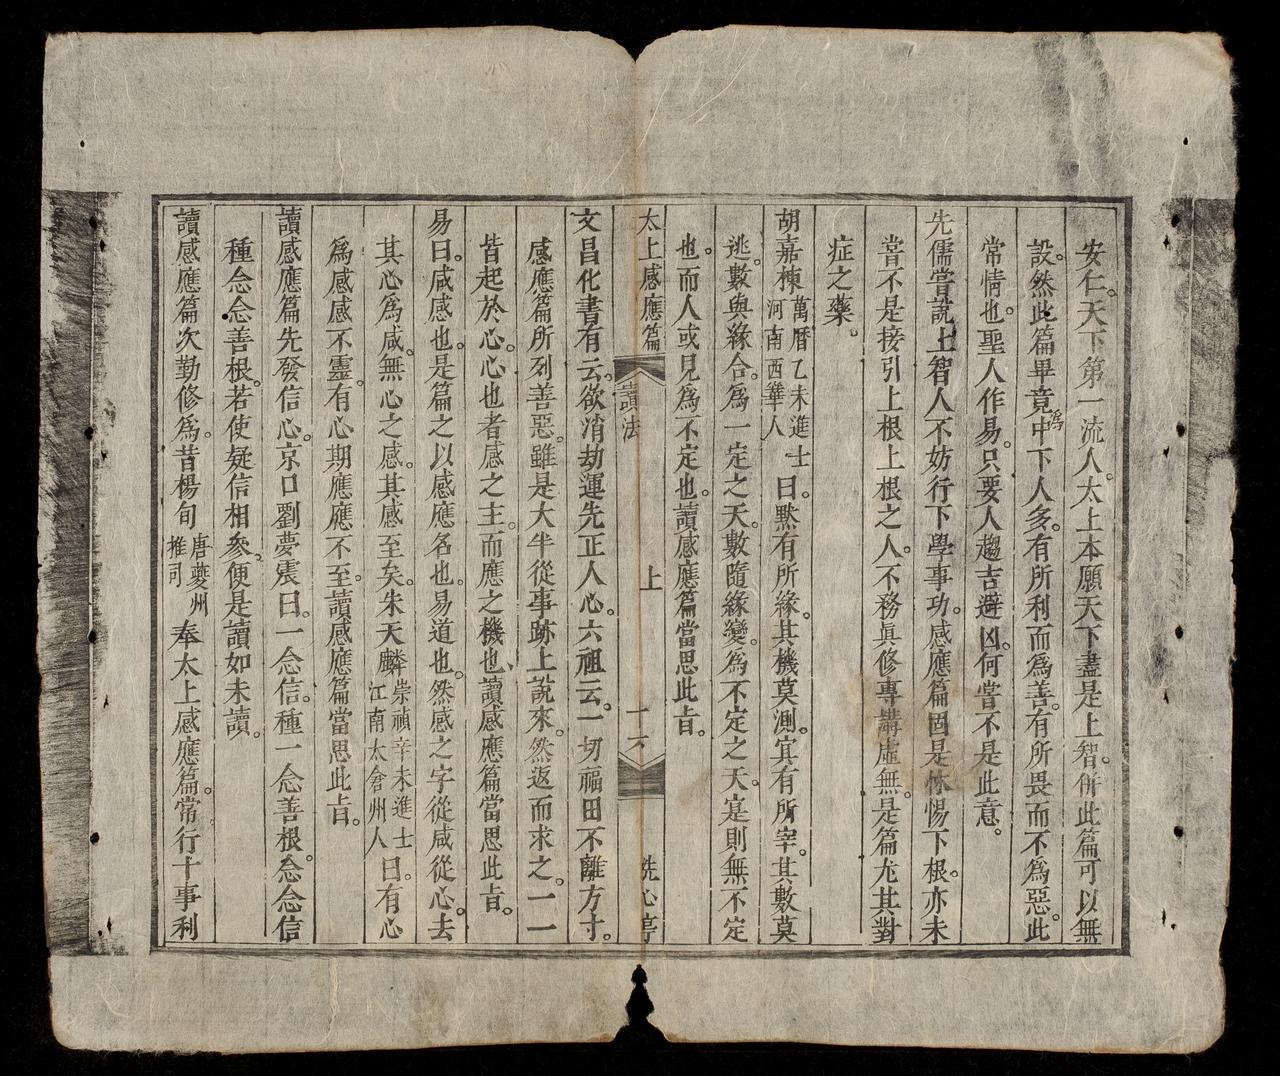 安仁。天下第一流人。太上本願天下盡是上智。併此篇可以無
設。然此篇畢竟為中下人多。有所利而為善。有所畏而不為惡。此
常情也。聖人作易。只要人趨吉避凶。何嘗不是此意。
先儒嘗說上智人不妨行下學事功。感應篇固是怵惕下根。亦未
嘗不是接引上根上根之人。不務真修專講虛無。是篇尤其對
症之藥。
胡嘉棟萬曆乙未進士河南西華人曰。默有所緣。其機莫測。冥有所宰。其數莫
逃。數與緣合。為一定之天。數隨緣變。為不定之天。寔則無不定
也。而人或見為不定也。讀感應篇當思此旨。
太上感應篇 讀法 上 十六 洗心亭
文昌化書有云。欲消劫運先正人心。六祖云。一切福田不離方寸。
感應篇所列善惡。雖是大半從事跡上說來。然返而求之。一一
皆起於心。心也者感之主。而應之機也。讀感應篇當思此旨。
易曰。咸感也。是篇之以感應名也。易道也。然感之字從咸從心。去
其心為咸。無心之感。其感至矣。朱天麟崇禎辛未進士江南太倉州人曰。有心
為感感不靈。有心期應應不至。讀感應篇當思此旨。
讀感應篇先發信心。京口劉夢震曰。一念信。種一念善根。念念信
種念念善根。若使疑信相參。便是讀如未讀。
讀感應篇次勤修為。昔楊旬唐夔州推司奉太上感應篇。常行十事利